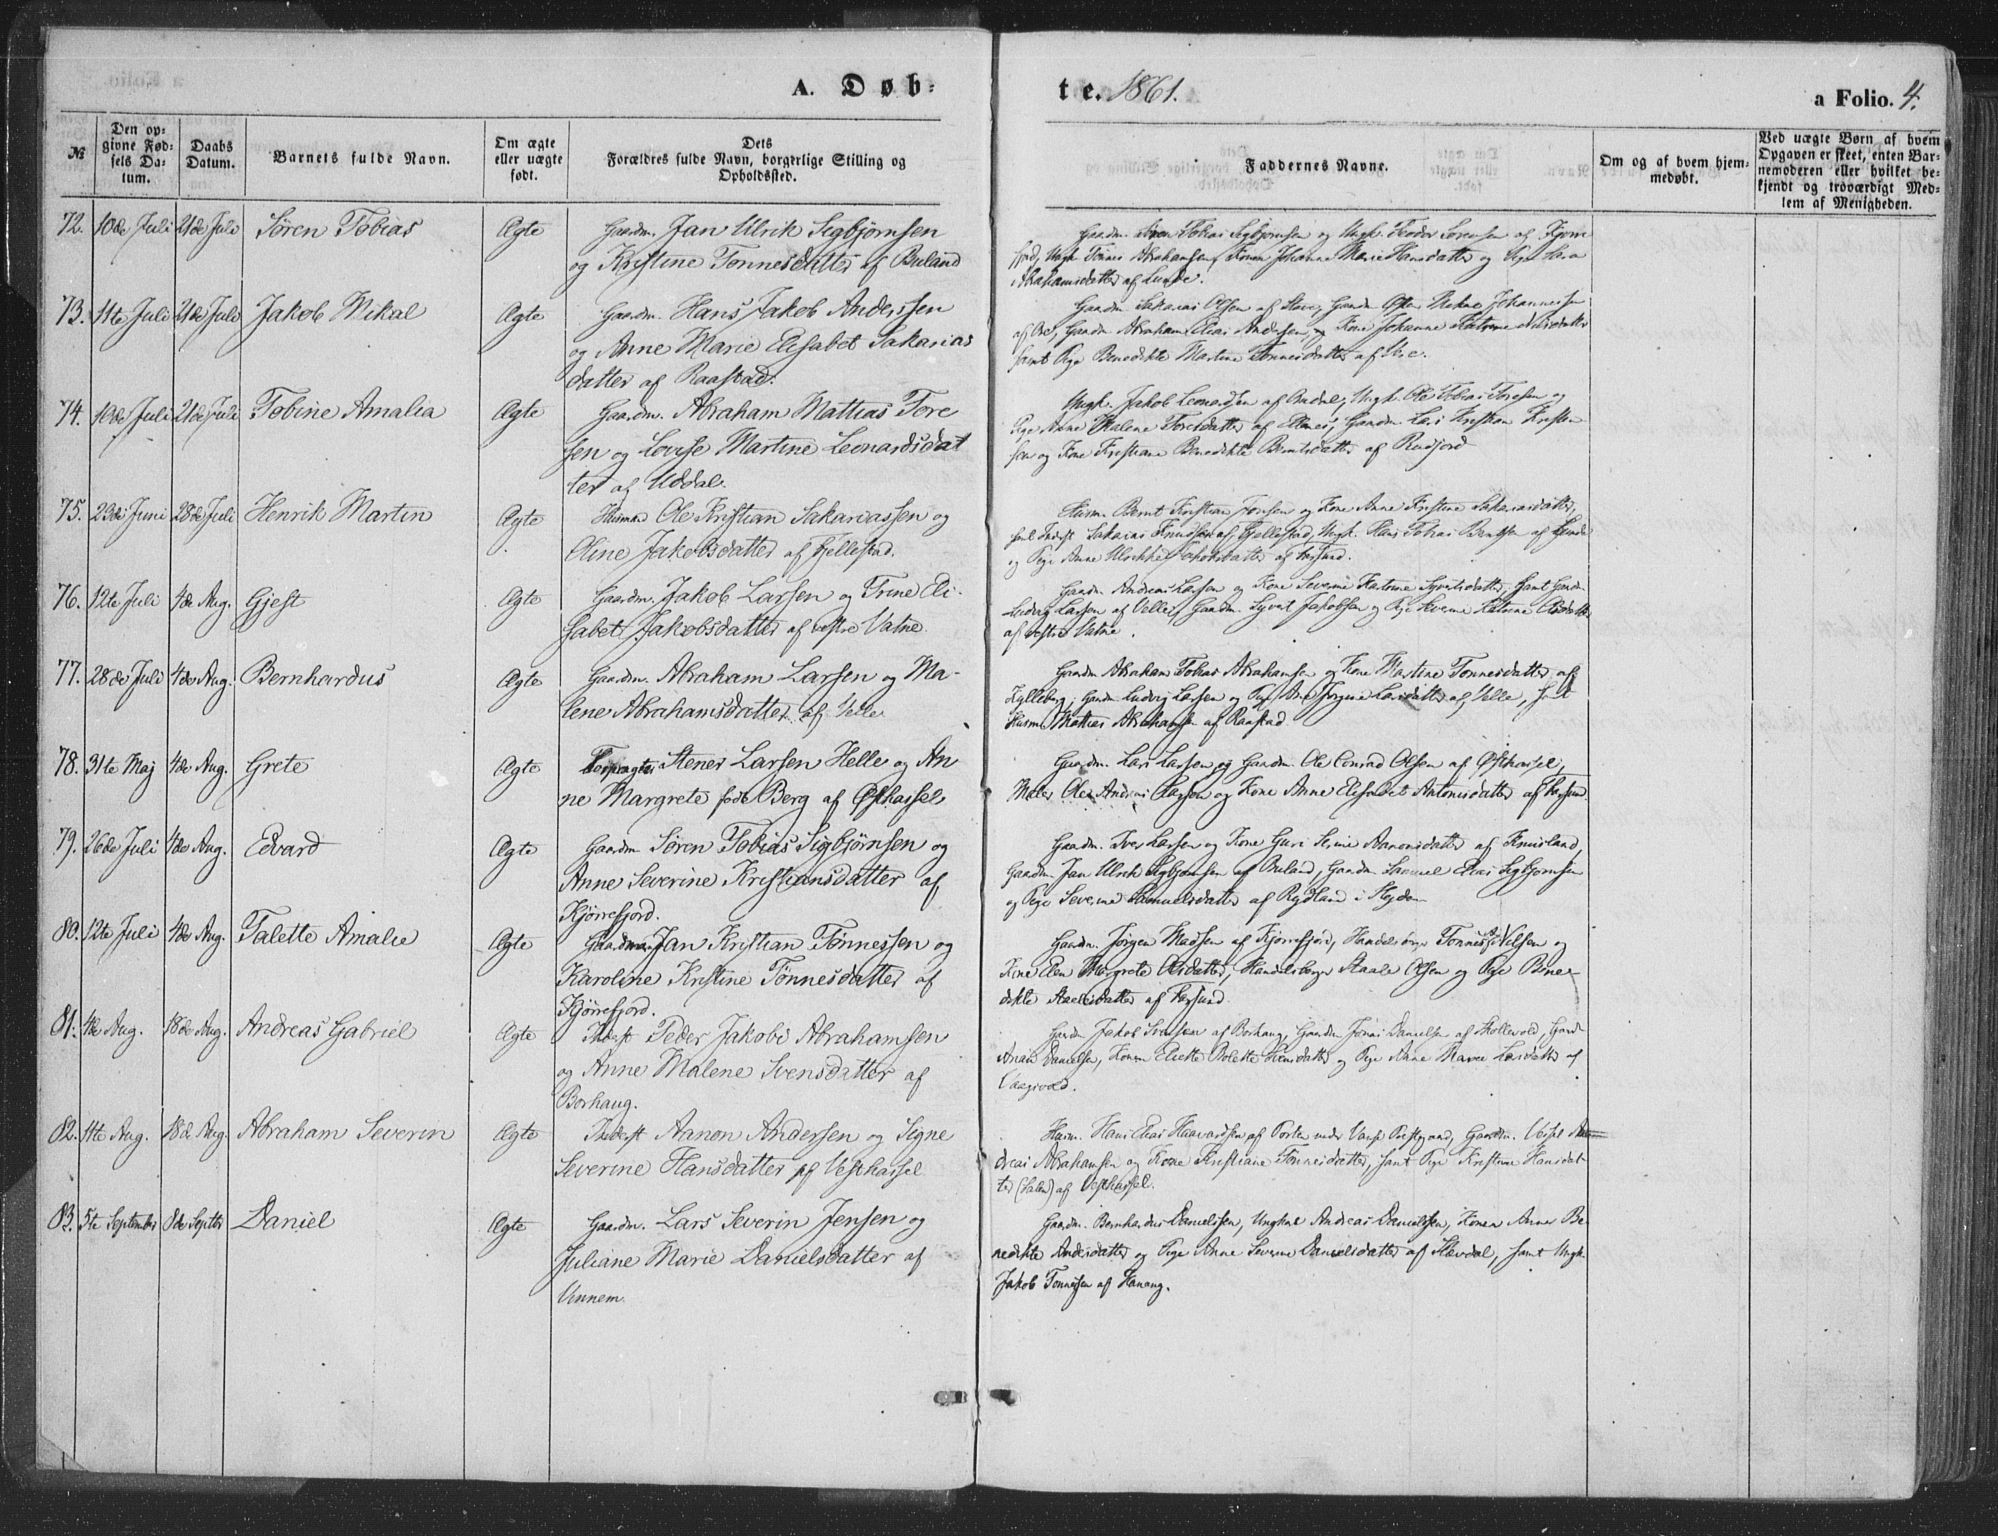 A. Døb-
te. 1861.
a Folio. 4.
№
Den op-
givne Fød-
sels Da-
tum.
Daabs
Datum.
Barnets fulde Navn.
Om ægte
eller uægte
født.
Dets
Forældres fulde Navn, borgerlige Stilling og
Opholdssted.
Faddernes Navne.
Om og af hvem hjem-
medøbt.
Ved uægte Børn af hvem
Opgaven er skeet, enten Bar-
nemoderen eller hvilket be-
kjendt og troværdigt Med-
lem af Menigheden.
72. 10de Juli 21de Juli Søren Tobias Ægte Gaardm. Jan Ulrik Sigbjørnsen
og Kristine Tønnesdatter af Buland
Gaardm. Søren Tobias Sigbjørnsen og Ungk. Teodor Sørensen af Kjørre
fjord, Ungk Tønnes Abrahamsen, Konen Johanne Marie Hansdatter og Pige Sara
Abrahamsdatter af Lunde.
73. 11te Juli 21de Juli Jakob Mikal Ægte Gaardm. Hans Jakob Anderssen
og Anne Marie Elisabet Sakarias
datter af Raastad.
Gaardm Sakarias Olsen af Stave, Gaardm Johannessen
af Ore, Gaardm Abraham Elias Andersen og Kone Johanne Katrine
samt Pige Benedikte Martine Tønnesdatter af Ore.
74. 10de Juli 21de Juli Tobine Amalia Ægte Gaardm. Abraham Mattias Tore
sen og Lovise Martine Leonardsdat
ter af Uddal.
Ungk. Jakob Leonardsen af Ungk. Ole Tobias Toresen og
Pige Anne Malene Toresdatter af Gaardm Lars Kristian Kristen
sen og Kone Kristiane Benedikte Berntsdatter af Rudjord
75. 23de Juni 28de Juli Henrik Martin Ægte Husmd Ole Kristian Sakariassen og
Oline Jakobsdatter af Fjellestad.
Husm. Bernt Kristian Jonsen og Kone Anne Kristine Sakariasdatter,
Inderst Sakarias Knudsen af Fjellestad, Ungk. Hans Tobias Berntsen af Lunde
og Pige Anne Ulrikke Jakobsdatter af Farsund.
76. 12te Juli 4de Aug. Gjest Ægte Gaardm. Jakob Larsen og Trine Eli-
sabet Jakobsdatter af vestre Vatne.
Gaardm. Andreas Larsen og Kone Severine Katrine Syvertsdatter, samt Gaardm
Ludvig Larsen af Velle, Gaardm. Syvert Jakobsen og Pige Severine Katrine
af vestre Vatne.
77. 28de Juli 4de Aug. Bernhardus Ægte Gaardm. Abraham Larsen og Ma-
lene Abrahamsdatter af Velle
Gaardm Abraham Tobias Abrahamsen og Kone Martine Tønnesdatter af
Gaardm Ludvig Larsen og Pige Ane Jørgine Larsdatter af Velle, samt
Husm Mattias Abrahamsen af Raastad
78. 31te Maj 4de Aug. Grete Ægte Forpagter Stener Larsen Helle og An
ne Margrete født Berg af Østhassel.
Gaardm. Lars Larsen og Gaardm Ole Conrad Olsen af Østhassel,
Maler Ole Andreas Larsen og Kone Anne Elisabet Antonisdatter af Farsund
79. 26de Juli 4de Aug. Edvard Ægte Gaardm Søren Tobias Sigbjørnsen og
Anne Severine Kristiansdatter af
Kjørrefjord.
Gaardm. Iver Larsen og Kone Guri Serine Aanonsdatter af
Gaardm Jan Ulrik Sigbjørnsen af Buland, Gaardm Samuel Elias Sigbjørnsen
og Pige Severine Samuelsdatter af Rydland i
80. 12te Juli 4de Aug. Talette Amalie Ægte Gaardm Jan Kristian Tønnessen og
Karoline Kristine Tønnesdatter af
Kjørrefjord.
Gaardm. Jørgen Madsen af Kjørrefjord, Handelsborger Tønnes Nilsen og
Kone Elen Margrete Olsdatter, Handelsborger Staale Olsen og Pige Bene-
dikte Staalesdatter af Farsund.
81. 4de Aug. 18de Aug. Andreas Gabriel Ægte Inderst Peder Jakobi Abrahamsen
og Anne Malene Svensdatter af
Borhaug.
Gaardm Jakob Svensen af Borhaug, Gaardm Jonas Danielsen af Skollevold, Gaard
Danielsen, Konen Eliette Bolette og Pige Anne Marie Larsdatter af
Vaagsvold.
82. 11te Aug. 18d. Aug. Abraham Severin Ægte Inderst Aanon Andersen og Signe
Severine Hansdatter af Vesthassel
Husm. Hans Elias Haavardsen af Porten under Vanse Prestgaard, Gaardm. An
dreas Abrahamsen og Kone Kristiane Tønnesdatter, samt Pige Kristine Hansdat
ter af Vesthassel.
83. 5te September 8de Septbr Daniel Ægte Gaardm. Lars Severin Jensen og
Juliane Marie Danielsdatter af
Vinnem
Gaardm. Bernhardus Danielssen, Ungkal Andreas Danielssen, Konen Anne Be-
nedikte Andersdatter og Pige Anne Severine Danielsdatter af samt Ungk.
Jakob Tønnessen af Hanang.